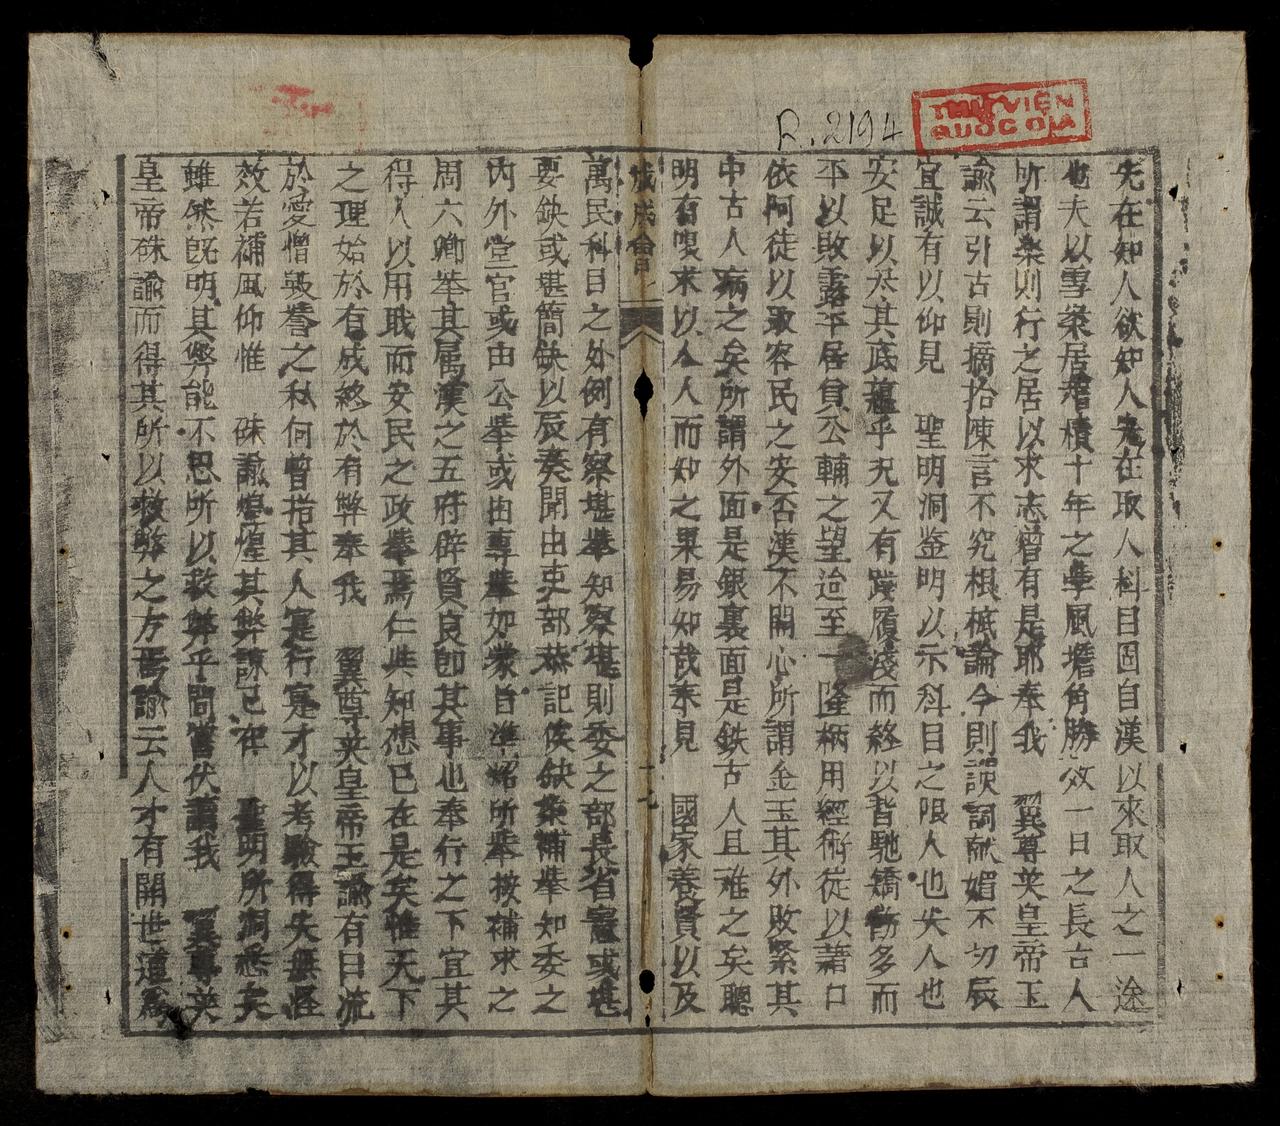 R.2194
THƯ VIỆN
QUỐC GIA
先在知人欲知人先在取人科目固自漢以來取人之一途
也夫以雪案居稽積十年之學風簷角勝效一日之長古人
所謂樂則行之居以求志曾有是耶奉我 翼尊英皇帝玉
諭云引古則摘拾陳言不究根柢論今則諛詞献媚不切辰
宜誠有以仰見 聖明洞鉴明以示科目之限人也失人也
安足以尽其底蘊乎况又有踐履淺而終以皆馳矯飭多而
卒以敗露平居負公輔之望迨至一隆柄用經術徒以藉口
依阿徒以取容民之安否漠不關心所謂金玉其外敗絮其
中古人病之矣所謂外面是銀裏面是鉄古人且难之矣聰
明有嗅求以人人而知之果易知哉奉見 國家養賢以及
成成會
十七
萬民科目之外例有察堪舉知察堪則委之部長省憲或堪
要缺或堪簡缺以辰奏聞由吏部恭記俟缺案補舉知委之
内外堂官或由公舉或由專舉如蒙旨准炤所舉按補求之
周六卿举其属漢之五府辟賢良卽其事也奉行之下宜其
得人以用戝而安民之政舉焉仁共知想已在是矣惟天下
之理始於有成終於有弊奉我 翼尊英皇帝玉諭有曰流
於愛憎毀誉之私何曾指其人寔行寔才以考驗得失無怪
效若補風仰惟 硃諭煌煌其弊諒已在 聖明所洞悉矣
雖然既明其弊能不思所以救弊乎間嘗伏讀我 翼尊英
皇帝硃諭而得其所以救弊之方焉諭云人才有關世道爲